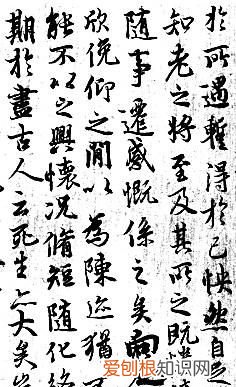 於所遇蹔得於己快然自足
知老之將至及其所之既惓
隨事遷感慨係之矣向
欣俛仰之閒以為陳迹猶
能不以之興懷況脩短隨化終
期於盡古人云死生亦大矣
爱刨根知识网